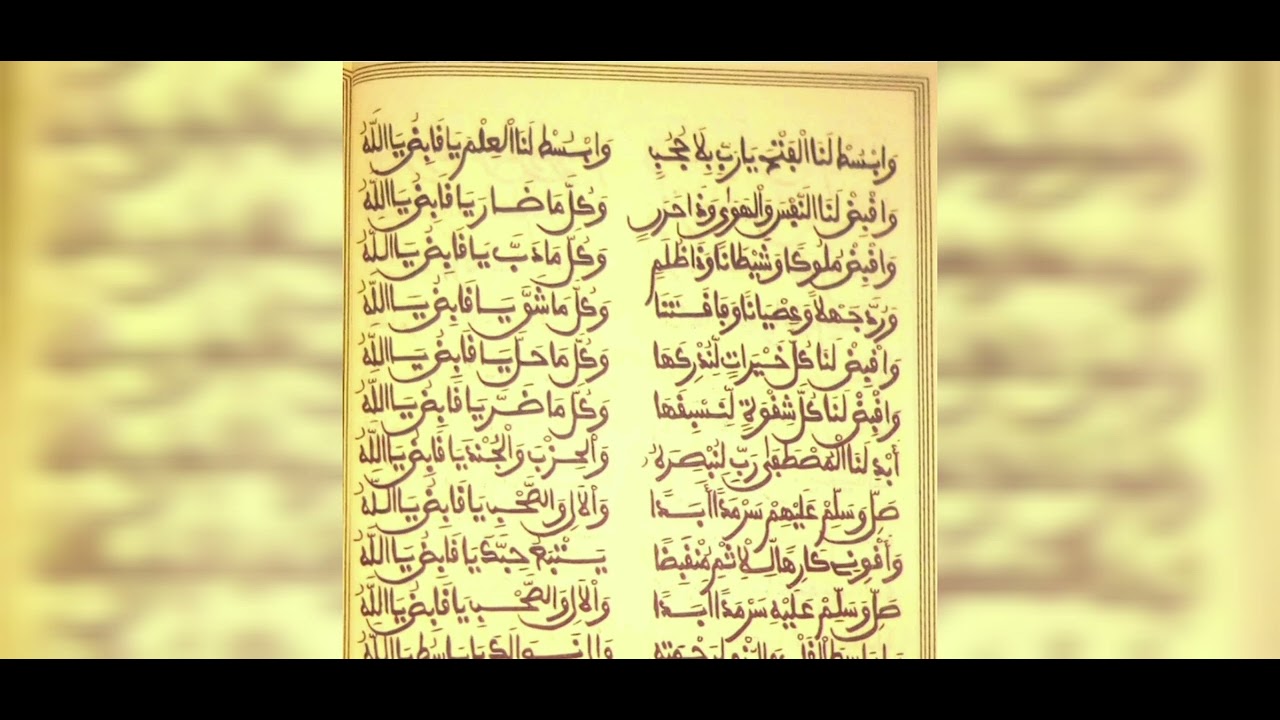 وَابْسُطْ لَنَا الْفَتْحَ يَارَبِّ بِلَا حُجُبٍ وَابْسُطْ لَنَا الْعِلْمَ يَا قَابِضُ يَا اَللَّهُ
وَاقْبِضْ لَنَا النَّفْسَ وَالْهَوٰى وَذَا ضَرَرٍ وَكُلَّ مَا ضَارَ يَا قَابِضُ يَا اَللَّهُ
وَاقْبِضْ مُلُوكًا وَشَيْطَانًا وَذَا ظُلَمٍ وَكُلَّ مَا دَبَّ يَا قَابِضُ يَا اَللَّهُ
وَرُدَّ جَهْلًا وَعِصْيَانًا وَفَاقَتَنَا وَكُلَّ مَا شَقَّ يَا قَابِضُ يَا اَللَّهُ
وَاقْبِضْ لَنَا كُلَّ خَيْرَاتٍ لِنُدْرِكَهَا وَكُلَّ مَا حَلَّ يَا قَابِضُ يَا اَللَّهُ
وَاقْبِضْ لَنَا كُلَّ شِقْوَةٍ لِنَسْبِقَهَا وَكُلَّ مَا ضَرَّ يَا قَابِضُ يَا اَللَّهُ
أَبْدِ لَنَا الْمُصْطَفَى رَبِّ لِنُبْصِرَهُ وَالْحِزْبَ وَالْجُنْدَ يَا قَابِضُ يَا اَللَّهُ
صَلِّ وَسَلِّمْ عَلَيْهِمْ سَرْمَدًا أَبَدًا وَالْآلِ وَالصَّحْبِ يَا قَابِضُ يَا اَللَّهُ
كَارِهًا يَا قَابِضُ يَا اَللَّهُ
صَلِّ وَسَلِّمْ عَلَيْهِ سَرْمَدًا أَبَدًا وَالْآلِ وَالصَّحْبِ يَا قَابِضُ يَا اَللَّهُ
يَا بَاسِطُ يَا اَللَّهُ